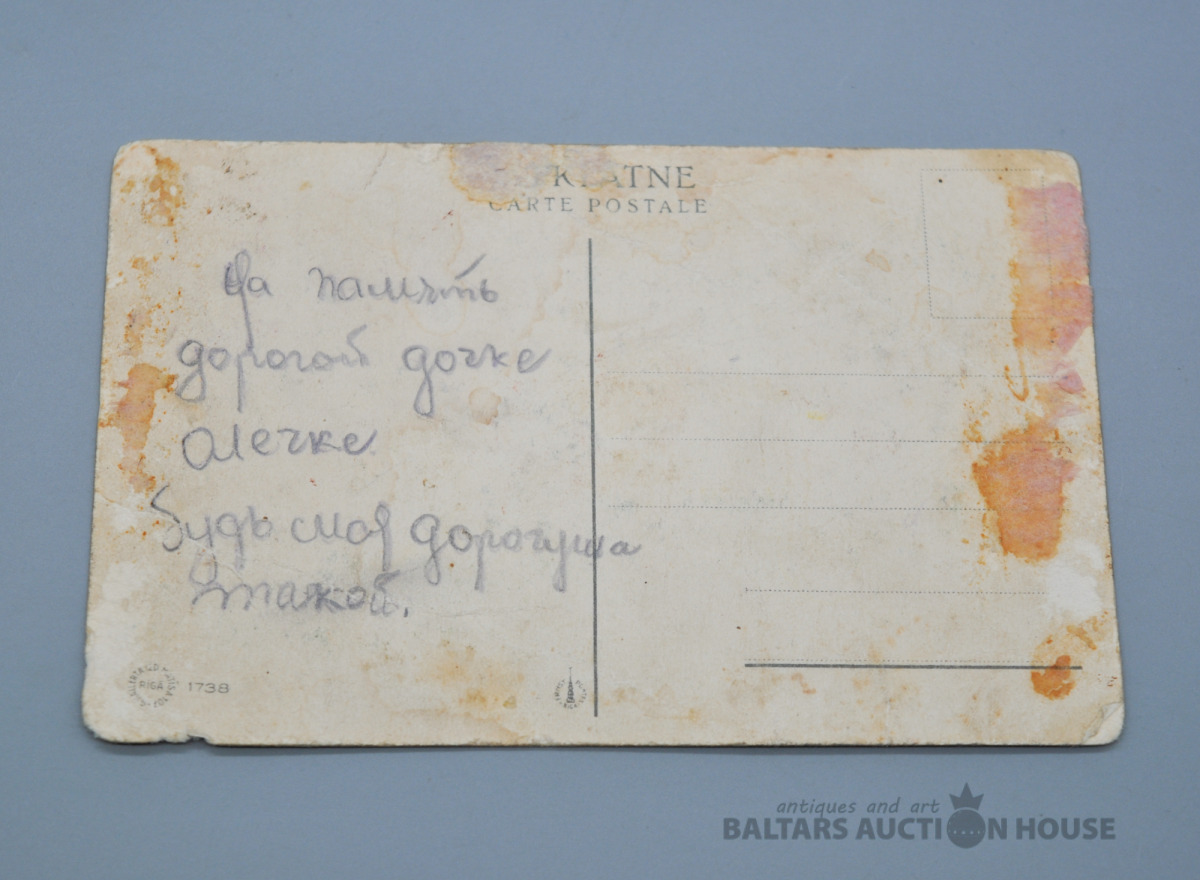 CARTE POSTALE
На память
дорогой дочке
Олечке
будь моя дорогуша
такой.
RIGA 1738
antiques and art
BALTARS AUCTION HOUSE